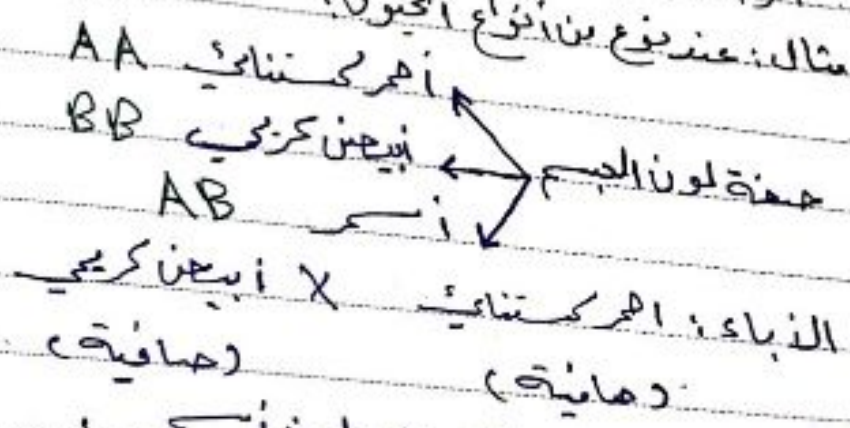 مثال: عند نوع من أنواع الخيول:
أحمر كستنائي AA
أبيض كريمي BB
صفة لون الجسم
أسمر AB
الآباء: احمر كستنائي X أبيض كريمي
(صافية) (صافية)